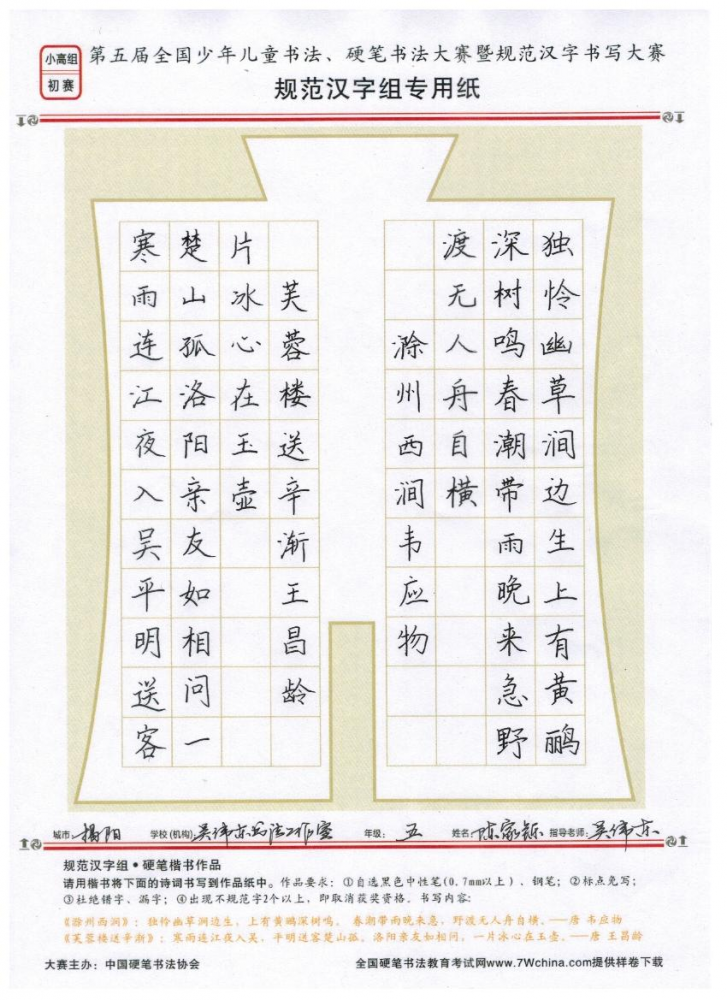 小高组
初赛
第五届全国少年儿童书法、硬笔书法大赛暨规范汉字书写大赛
规范汉字组专用纸
独怜幽草涧边生上有黄鹂
深树鸣春潮带雨晚来急野
渡无人舟自横
滁州西涧韦应物
寒雨连江夜入吴平明送客
楚山孤洛阳亲友如相问一
片冰心在玉壶
芙蓉楼送辛渐王昌龄
城市：揭阳 学校(机构)：吴伟东书法工作室 年级：五 姓名：陈家 指导老师：吴伟东
规范汉字组•硬笔楷书作品
请用楷书将下面的诗词书写到作品纸中。作品要求：①自选黑色中性笔(0.7mm以上)、钢笔；②标点免写；
③杜绝错字、漏字；④出现不规范字2个以上，即取消获奖资格。书写内容：
《滁州西涧》：独怜幽草涧边生，上有黄鹂深树鸣。 春潮带雨晚来急，野渡无人舟自横。——唐 韦应物
《芙蓉楼送辛渐》：寒雨连江夜入吴，平明送客楚山孤。洛阳亲友如相问，一片冰心在玉壶。——唐 王昌龄
大赛主办：中国硬笔书法协会 全国硬笔书法教育考试网www.7Wchina.com提供样卷下载